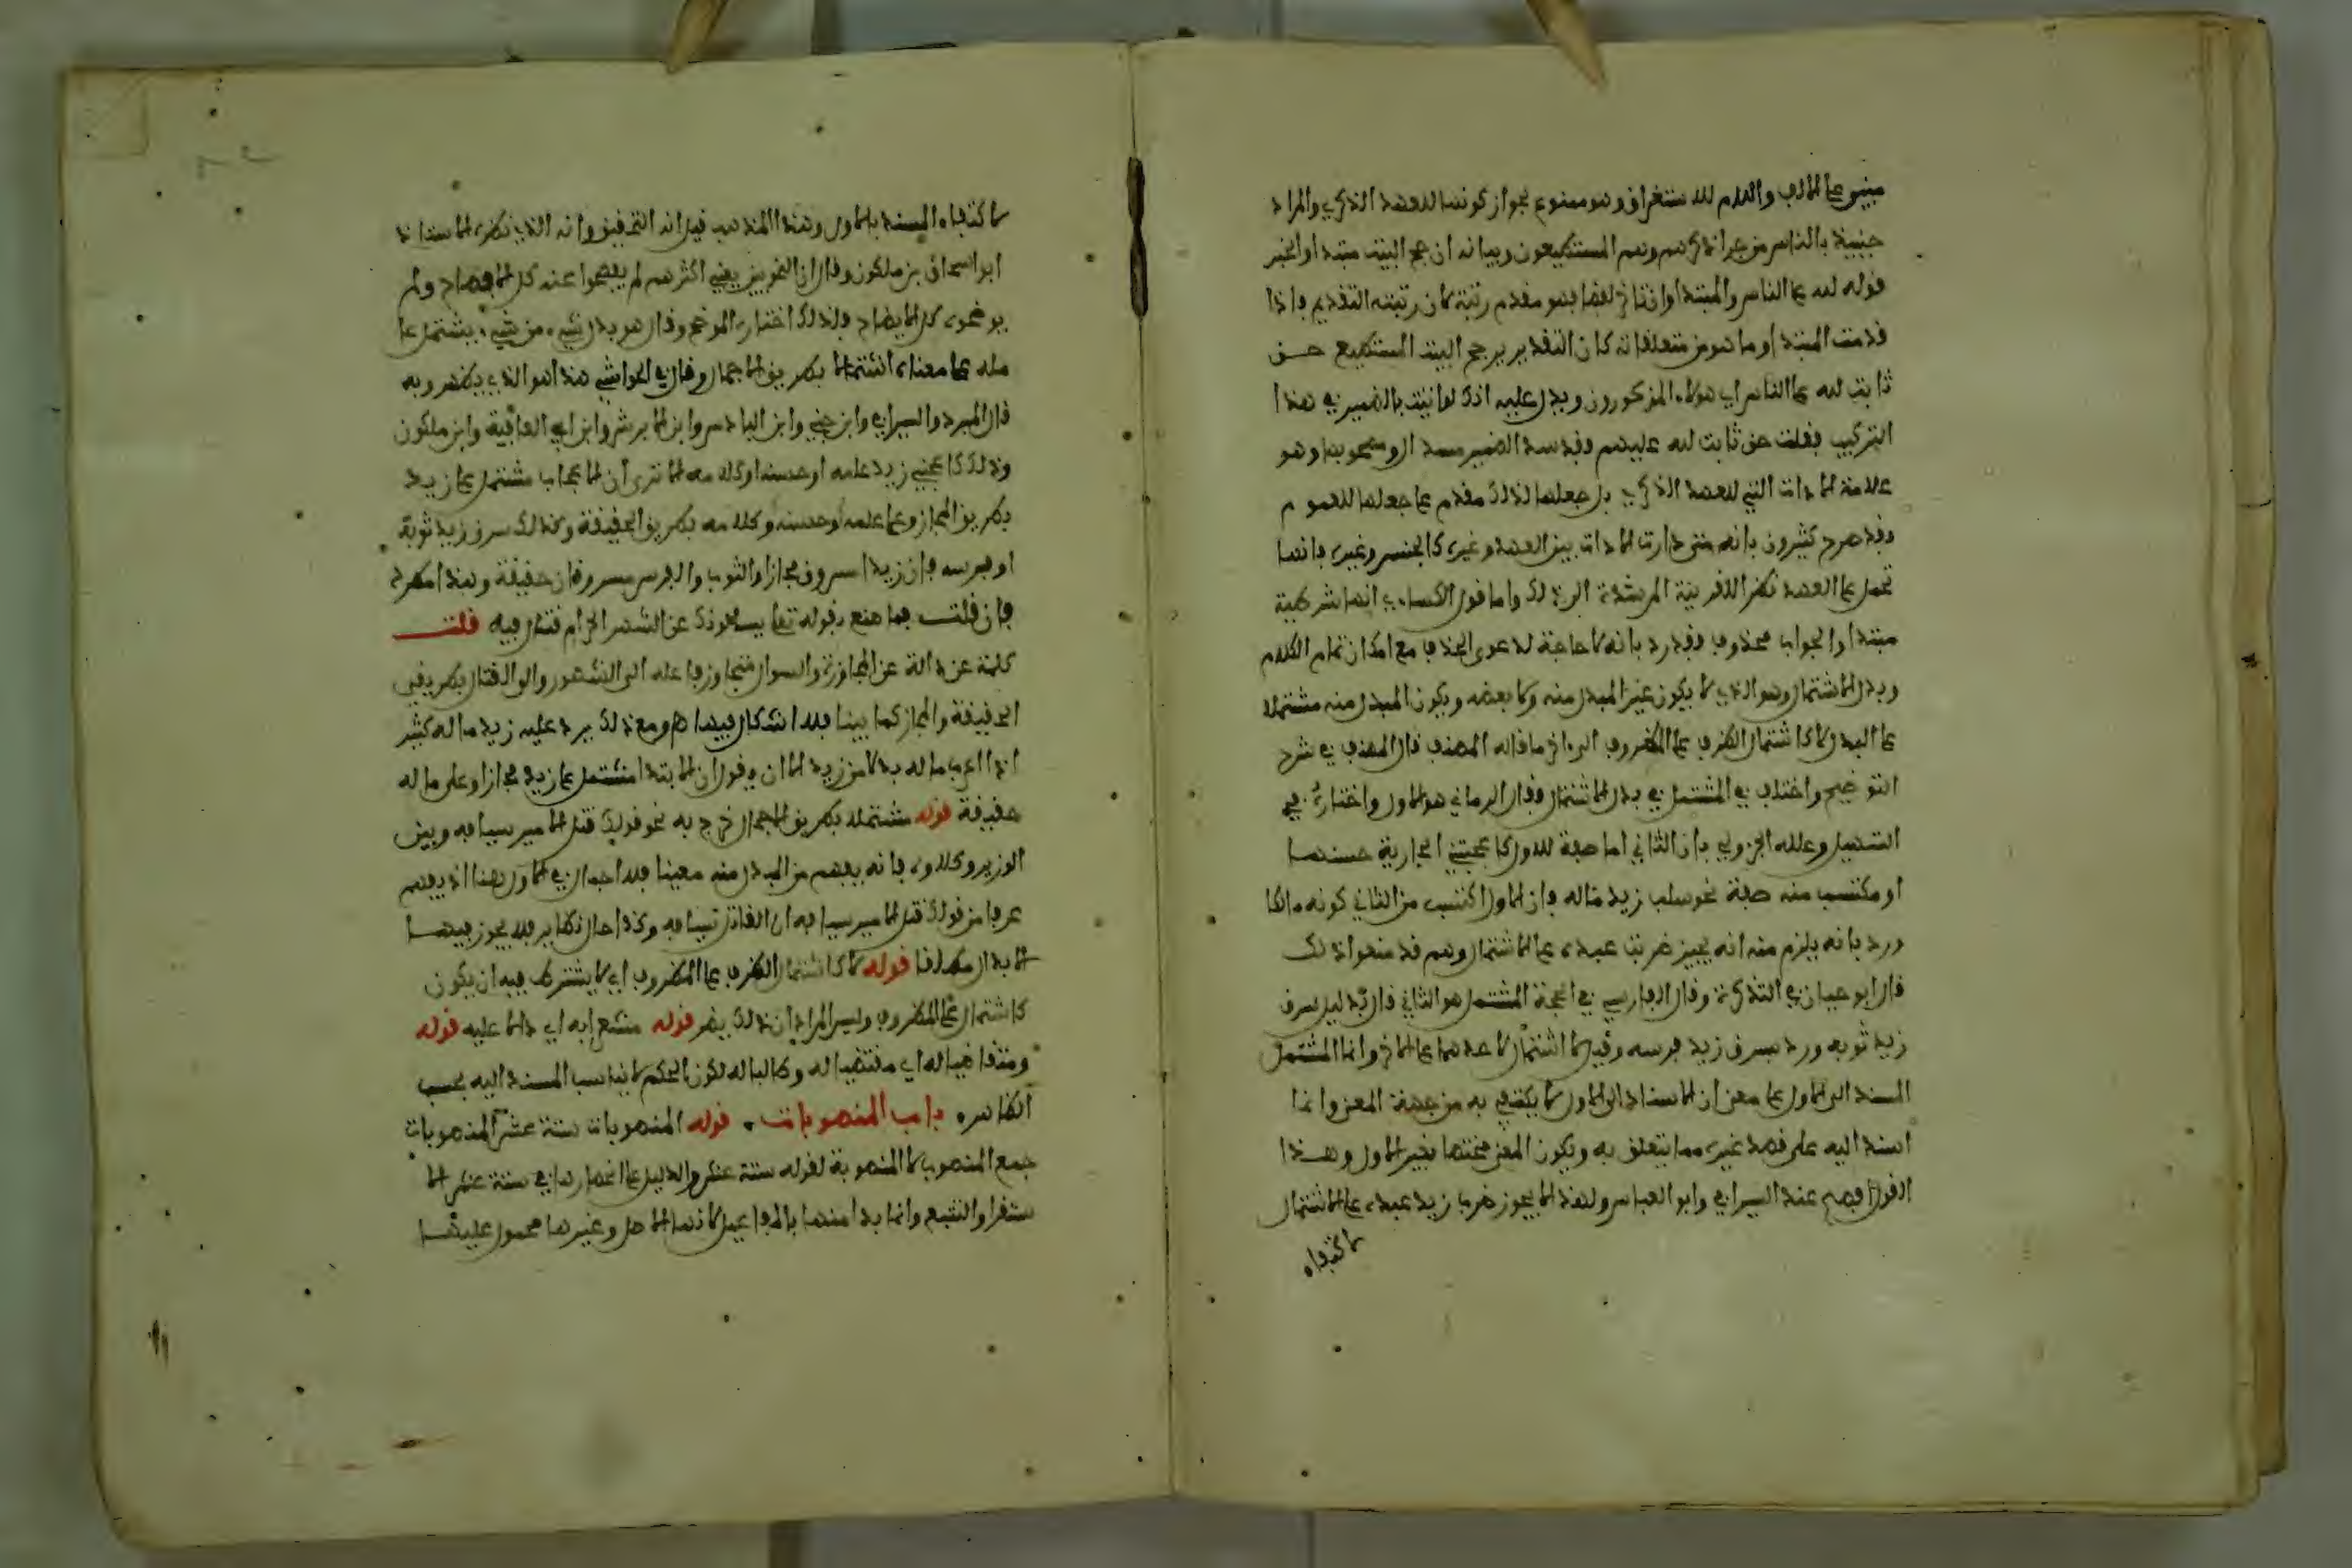 مبني على الالف واللام للاستغراق وهو ممنوع بجواز كونها للعهد الذكري والمراد
حينئذ بالناس من جرا ذكرهم وهم المستطيعون وبيانه ان حج البيت مبتدا والخبر
قوله لله على الناس والمبتدا وان تاخر لفظا فهو مقدم رتبة لان رتبته التقديم فاذا
قدمت المبتدا وما هو من متعلقاته كان التقدير حج البيت المستطيع حق
ثابت لله على الناس اي هؤلاء المذكورون ويدل عليه انك لو اتيت بالضمير في هذا
التركيب فقلت حق ثابت لله عليهم فقد سد الضمير مسد ال ومصحوبها وهو
علامة الادات التي للعهد الذكري بل جعلها لذلك مقدم على جعلها للعموم
فقد صرح كثيرون بانه متى دارت الادات بين العهد وغيره كالجنس وغيره فانها
تحمل على العهد نظرا للقرينة المرشدة الى ذلك واما قول الكسائي انها شرطية
مبتدا والجواب محذوف فقد رد بانه لا حاجة لدعوى الحذف مع امكان تمام الكلام
وبدل الاشتمال وهو الذي لا يكون عين المبدل منه ولا بعضه ويكون المبدل منه مشتملا
على البدل لا كاشتمال الظرف على المظروف الى اخر ما قاله المصنف قال المصنف في شرح
التوضيح واختلف في المشتمل في بدل الاشتمال فقال الرماني هو الاول واختاره في
التسهيل وعلله الجزولي بان الثاني اما صفة للاول كاعجبتني الجارية حسنها
او مكتسب منه صفة نحو سلب زيد ماله فان الاول اكتسب من الثاني كونه مالكا
ورد بانه يلزم منه انه يجيز ضربت عبده على الاشتمال وهم قد منعوا ذلك
قال ابو حيان في التذكرة وقال الفارسي في الحجة المشتمل هو الثاني قال بدليل سرق
زيد ثوبه ورد بسرق زيد فرسه وقيل لا اشتمال لاحدهما على الاخر وانما المشتمل
المسند الى الاول على معنى ان الاسناد الى الاول لا يكتفي به من جهة المعنى وانما
اسند اليه على قصد غيره مما يتعلق به ويكون المعنى مختصا بغير الاول وهذا
القول افهم عند السيرافي وابو العباس ولهذا لا يجوز ضرب زيد عبده على الاشتمال
لاكتفاء
لاكتفاء المسند بالاول وهذا المذهب قيل انه التحقيق وانه الذي نظره الاستاذ
ابو اسحاق بن ملكون وقال ان النحويين يعني اكثرهم لم يفصحوا عنه كل الافصاح ولم
يوضحوه كل الايضاح ولذلك اختاره الموضح وقال هو بدل شيء من شيء يشتمل عا
مله على معناه اشتمالا بطريق الاجمال وقال في الحواشي هذا هو الذي يظهر وبه
قال المبرد والسيرافي وابن جني وابن الباذش وابن الابرش وابن ابي العافية وابن ملكون
وذلك كاعجبني زيد علمه او حسنه او كلامه الا ترى ان الاعجاب مشتمل على زيد
بطريق المجاز وعلى علمه وحسنه وكلامه بطريق الحقيقة وكذلك سرق زيد ثوبه
او فرسه فان زيدا مسروق مجازا والثوب والفرس مسروقان حقيقة وهذا مطرد
فان قلت فما تصنع بقوله تعالى يسئلونك عن الشهر الحرام قتال فيه قلت
كلمة عن دالة عن المجاوزة والسوال متجاوز فاعله الى الشهر والى القتال بطريقي
الحقيقة والمجاز كما بينا فلا اشكال فيها ومع ذلك يرد عليه زيد ماله كثير
اذا اعرب ماله بدلا من زيد الا ان يقول ان الابتدا مشتمل على زيد مجازا وعلى ماله
حقيقة قوله مشتملا بطريق الاجمال خرج به نحو قولك قتل الامير سيافه وبنى
الوزير وكلاؤه فانه يفهم من المبدل منه معينا فلا اجمال في الاول هنا اذ يفهم
عرفا من قولك قتل الامير سيافه ان القاتل سيافه وكذا حال نظاير فلا يجوز فيهما
الابدال مطلقا قوله لا كاشتمال الظرف على المظروف اي لا يشترط فيه ان يكون
كاشتمال على المظروف وليس المراد ان ذلك يضر قوله مشعرا به اي دالا عليه قوله
ومتقاضيا له اي مقتضيا له وطالبا له لكون الحكم لا يناسب المسند اليه بحسب
الظاهر باب المنصوبات قوله المنصوبات ستة عشر المنصوبات
جمع المنصوب لا المنصوبة لقوله ستة عشر والدليل على انحصارها في ستة عشر الا
ستقرا والتتبع وانما بدا منها بالمفاعيل لانها الاصل وغيرها محمول عليها